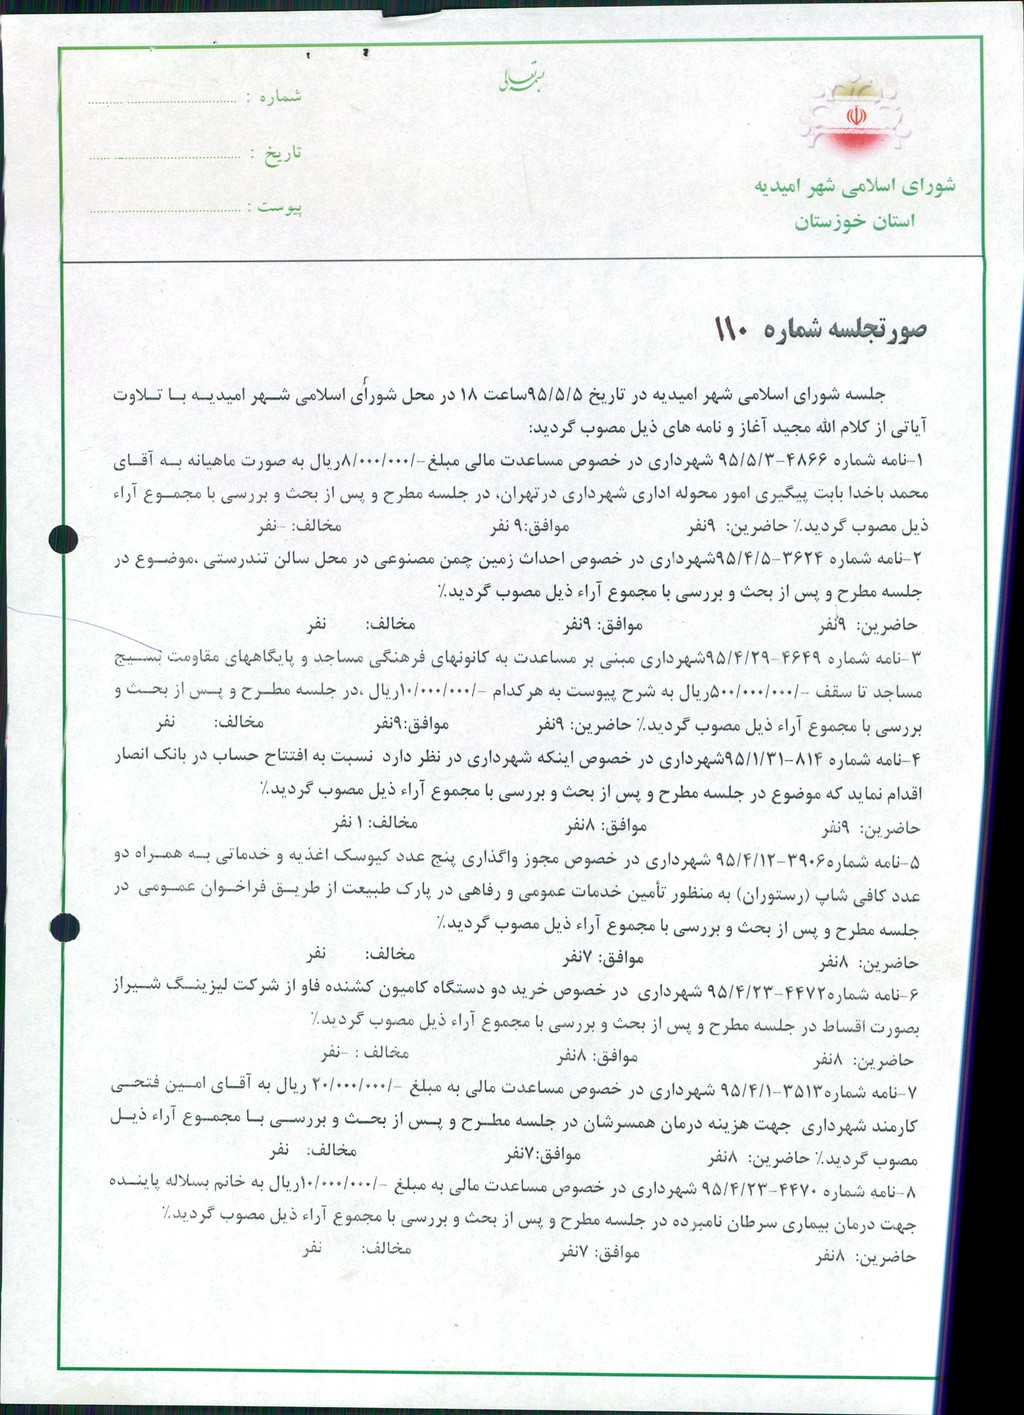 بسمه تعالی
شورای اسلامی شهر امیدیه
استان خوزستان
شماره : ............................
تاریخ : ............................
پیوست : ............................
صورتجلسه شماره ۱۱۰
جلسه شورای اسلامی شهر امیدیه در تاریخ ۹۵/۵/۵ساعت ۱۸ در محل شورای اسلامی شهر امیدیه با تلاوت
آیاتی از کلام الله مجید آغاز و نامه های ذیل مصوب گردید:
۱-نامه شماره ۴۸۶۶-۹۵/۵/۳ شهرداری در خصوص مساعدت مالی مبلغ-/۸/۰۰۰/۰۰۰ریال به صورت ماهیانه به آقای
محمد باخدا بابت پیگیری امور محوله اداری شهرداری درتهران، در جلسه مطرح و پس از بحث و بررسی با مجموع آراء
ذیل مصوب گردید.٪ حاضرین: ۹نفر موافق:۹ نفر مخالف: -نفر
۲-نامه شماره ۳۶۲۴-۹۵/۴/۵شهرداری در خصوص احداث زمین چمن مصنوعی در محل سالن تندرستی ،موضوع در
جلسه مطرح و پس از بحث و بررسی با مجموع آراء ذیل مصوب گردید.٪
حاضرین: ۹نفر موافق: ۹نفر مخالف: نفر
۳-نامه شماره ۴۶۴۹-۹۵/۴/۲۹شهرداری مبنی بر مساعدت به کانونهای فرهنگی مساجد و پایگاههای مقاومت بسیج
مساجد تا سقف -/۵۰۰/۰۰۰/۰۰۰ریال به شرح پیوست به هرکدام -/۱۰/۰۰۰/۰۰۰ریال ،در جلسه مطرح و پس از بحث و
بررسی با مجموع آراء ذیل مصوب گردید.٪ حاضرین: ۹نفر موافق:۹نفر مخالف: نفر
۴-نامه شماره ۸۱۴-۹۵/۱/۳۱شهرداری در خصوص اینکه شهرداری در نظر دارد نسبت به افتتاح حساب در بانک انصار
اقدام نماید که موضوع در جلسه مطرح و پس از بحث و بررسی با مجموع آراء ذیل مصوب گردید.٪
حاضرین: ۹نفر موافق: ۸نفر مخالف: ۱ نفر
۵-نامه شماره۳۹۰۶-۹۵/۴/۱۲ شهرداری در خصوص مجوز واگذاری پنج عدد کیوسک اغذیه و خدماتی به همراه دو
عدد کافی شاپ (رستوران) به منظور تأمین خدمات عمومی و رفاهی در پارک طبیعت از طریق فراخوان عمومی در
جلسه مطرح و پس از بحث و بررسی با مجموع آراء ذیل مصوب گردید.٪
حاضرین: ۸نفر موافق: ۷نفر مخالف: نفر
۶-نامه شماره۴۴۷۲-۹۵/۴/۲۳ شهرداری در خصوص خرید دو دستگاه کامیون کشنده فاو از شرکت لیزینگ شیراز
بصورت اقساط در جلسه مطرح و پس از بحث و بررسی با مجموع آراء ذیل مصوب گردید.٪
حاضرین: ۸نفر موافق: ۸نفر مخالف : -نفر
۷-نامه شماره۳۵۱۳-۹۵/۴/۱ شهرداری در خصوص مساعدت مالی به مبلغ -/۲۰/۰۰۰/۰۰۰ ریال به آقای امین فتحی
کارمند شهرداری جهت هزینه درمان همسرشان در جلسه مطرح و پس از بحث و بررسی با مجموع آراء ذیل
مصوب گردید.٪ حاضرین: ۸نفر موافق:۷نفر مخالف: نفر
۸-نامه شماره ۴۴۷۰-۹۵/۴/۲۳ شهرداری در خصوص مساعدت مالی به مبلغ -/۱۰/۰۰۰/۰۰۰ریال به خانم بسلاله پاینده
جهت درمان بیماری سرطان نامبرده در جلسه مطرح و پس از بحث و بررسی با مجموع آراء ذیل مصوب گردید.٪
حاضرین: ۸نفر موافق: ۷نفر مخالف: نفر